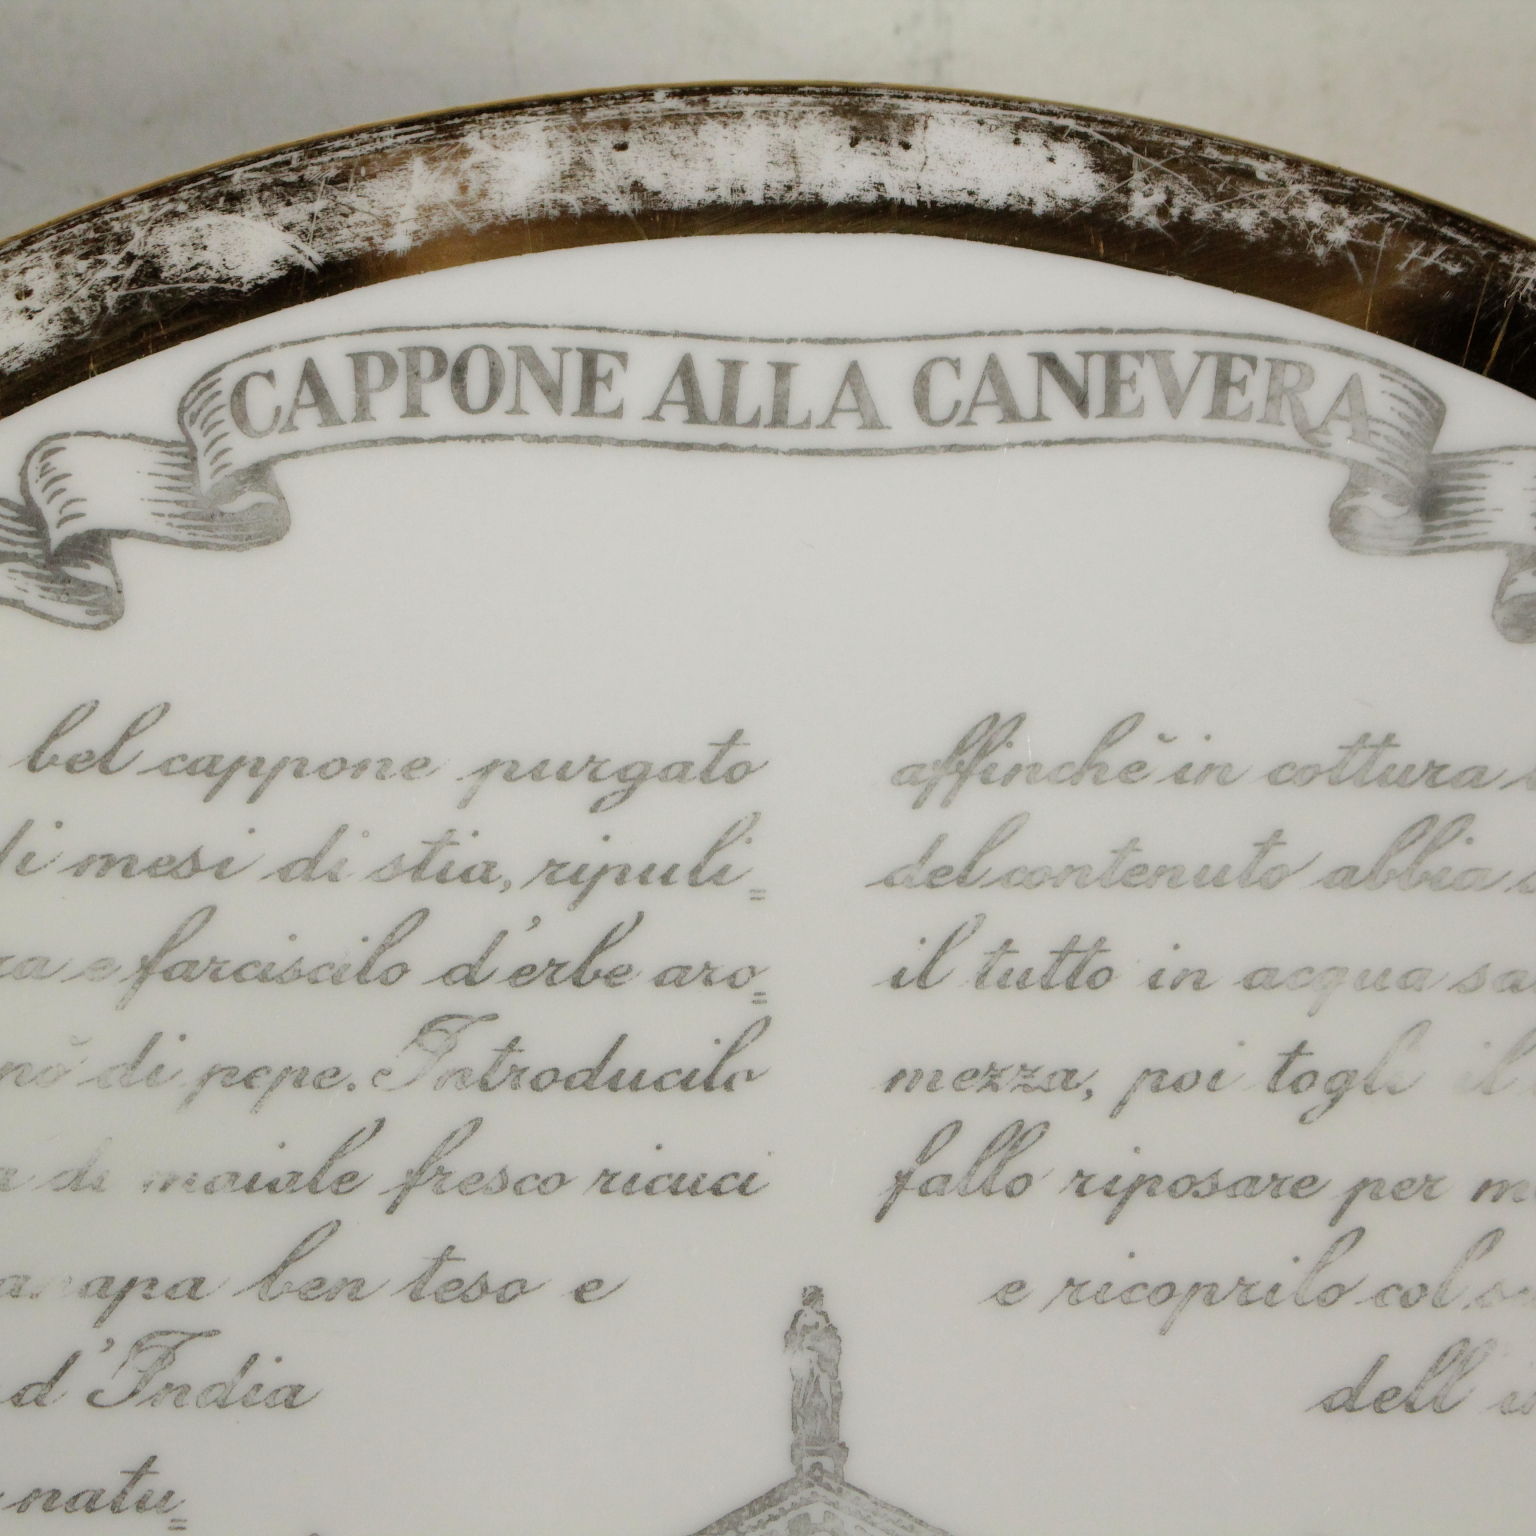 CAPPONE ALLA CANEVERA
bel cappone purgato
mesi di stia, ripuli=
e farciscilo d'erbe aro=
di pepe. Introducilo
di maiale fresco ricuci
ben teso e
d'India
natu=
affinchè in cottura
del contenuto abbia
il tutto in acqua
mezza, poi togli il
fallo riposare per
e ricoprilo col
dell